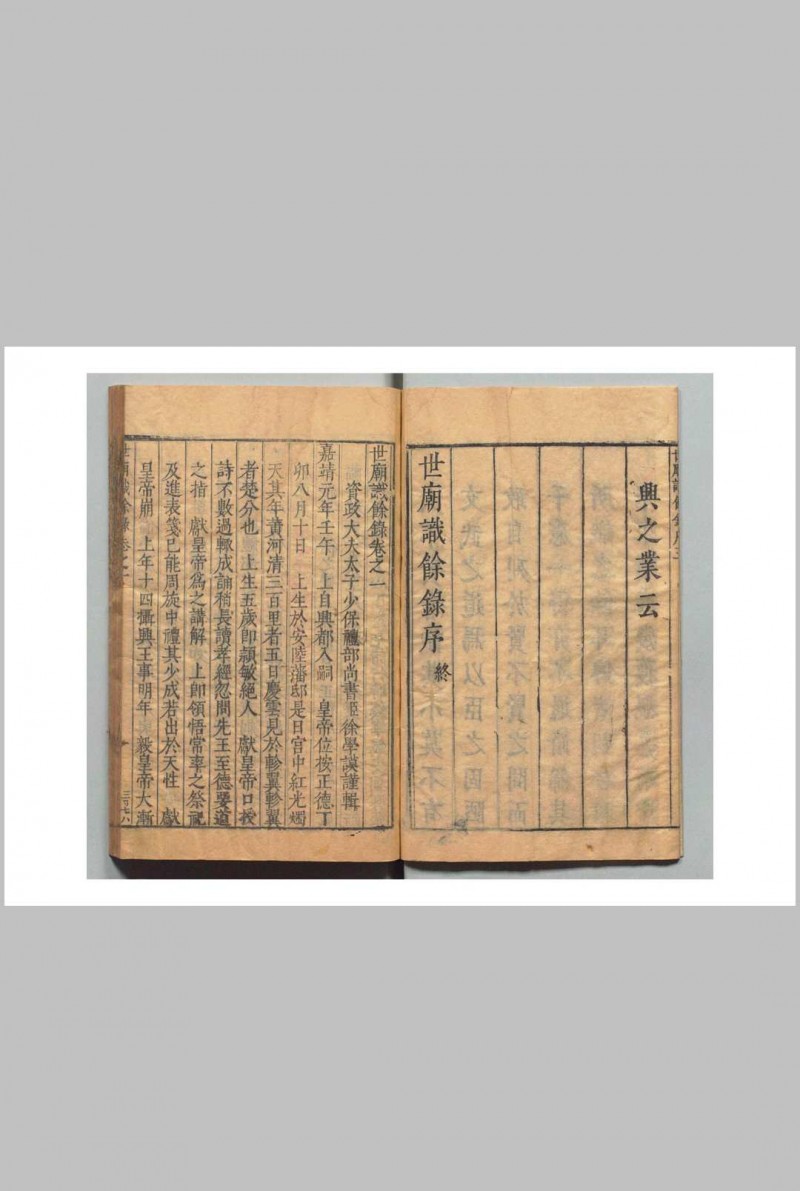 興之業云
世廟識餘錄序 終
世廟識餘錄卷之一
資政大夫太子少保禮部尚書臣徐學謨謹輯
嘉靖元年壬午 上自興都入嗣 皇帝位按正德丁
卯八月十日 上生於安陸藩邸是日宫中紅光燭
天其年黃河清三百里者五日慶雲見於軫翼軫翼
者楚分也 上生五歲即頴敏絕人 獻皇帝口授
詩不數過輒成誦稍長讀孝經忽問先王至德要道
之指 獻皇帝為之講解 上即領悟常率之祭祀
及進表箋已能周旋中禮其少成若出於天性 獻
皇帝崩 上年十四攝興王事明年 毅皇帝大漸
世廟識餘錄卷之一